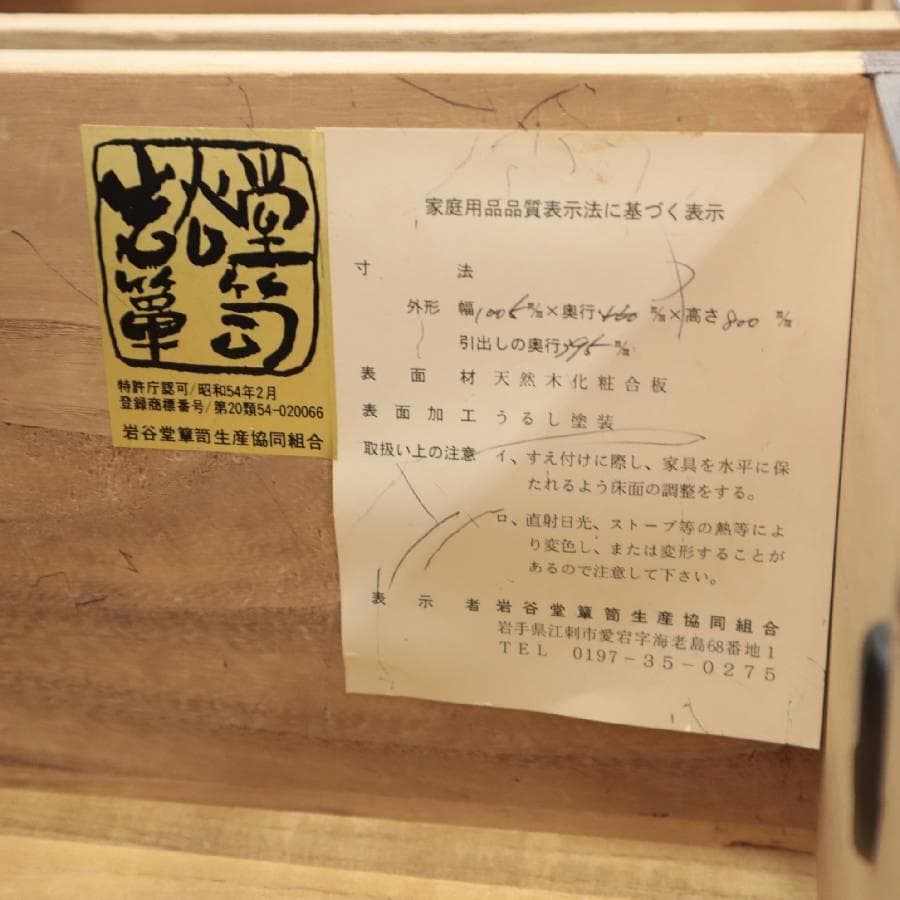 岩谷堂
簞笥
特許庁認可/昭和54年2月
登録商標番号/第20類54-020066
岩谷堂簞笥生産協同組合
家庭用品品質表示法に基づく表示
寸法
外形 幅1005m/m×奥行460m/m×高さ800m/m
引出しの奥行395m/m
表面材 天然木化粧合板
表面加工 うるし塗装
取扱い上の注意 イ、すえ付けに際し、家具を水平に保
たれるよう床面の調整をする。
ロ、直射日光、ストーブ等の熱等によ
り変色し、または変形することが
あるので注意して下さい。
表示者 岩谷堂簞笥生産協同組合
岩手県江刺市愛宕字海老島68番地1
TEL 0197-35-0275